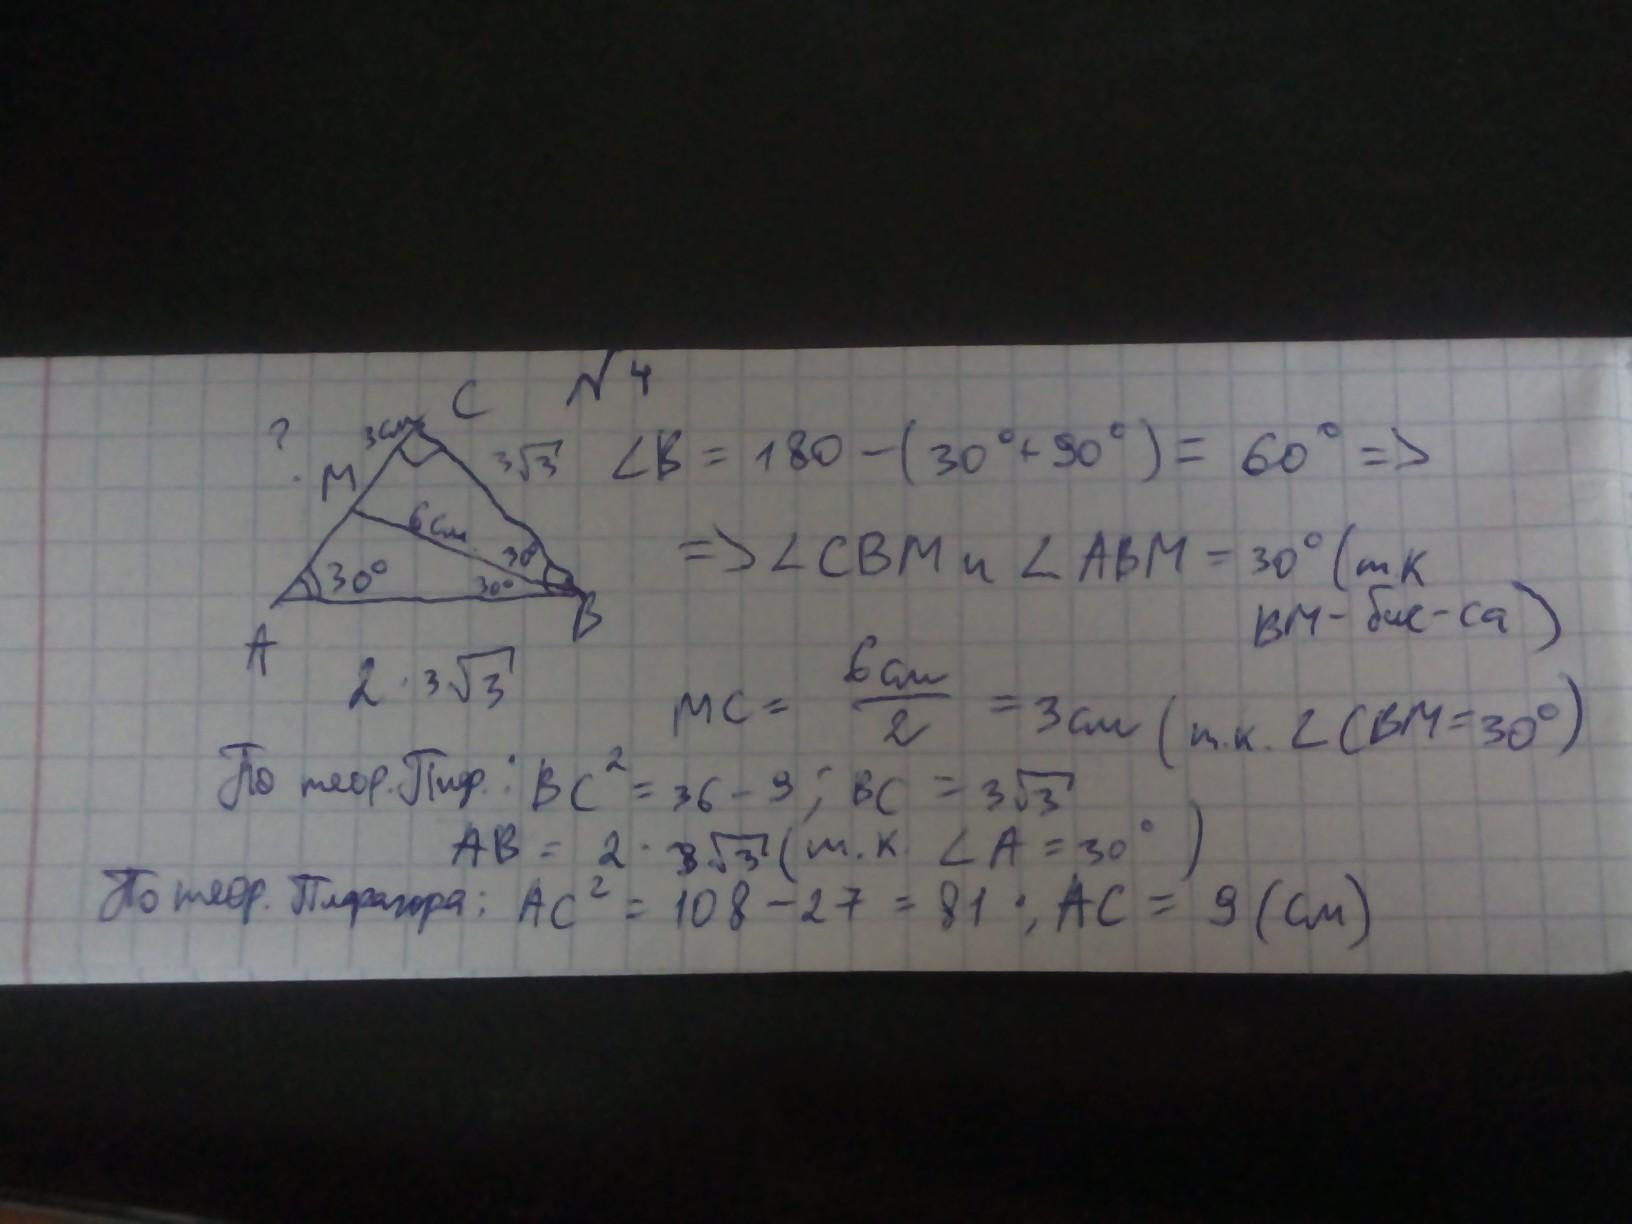 N 4
C
?
3см
3√3
M
6см
30°
30°
30°
A
B
2·3√3
∠B = 180 - (30°+90°) = 60° =>
=> ∠CBM и ∠ABM = 30° (т.к
BM - бис-са)
MC = 6см/2 = 3см (т.к. ∠CBM=30°)
По теор. Пиф.: BC² = 36 - 9; BC = 3√3
AB = 2·3√3 (т.к. ∠A = 30°)
По теор. Пифагора: AC² = 108 - 27 = 81; AC = 9 (см)